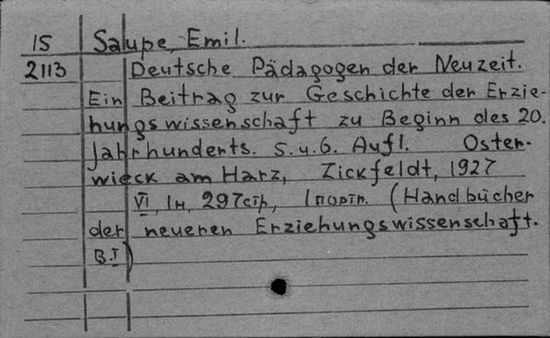 15 Saupe, Emil.
2113 Deutsche Pädagogen der Neuzeit.
Ein Beitrag zur Geschichte der Erzie-
hungswissenschaft zu Beginn des 20.
Jahrhunderts. 5.u.6. Aufl. Oster-
wieck am Harz, Zickfeldt, 1927
VI, 1н, 297стр, 1портр. (Handbücher
der neueren Erziehungswissenschaft.
B.I)